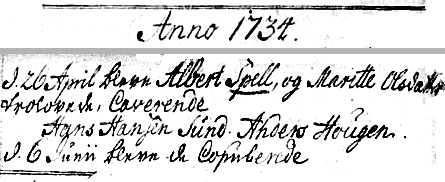 Anno 1734.
d. 26 April bleve Albert Spell, og Maritte Olsdatter
trolovede, Caverende
Hans Hansen Sund. Anders Hougen.
d. 6 Junii bleve de Copulerede